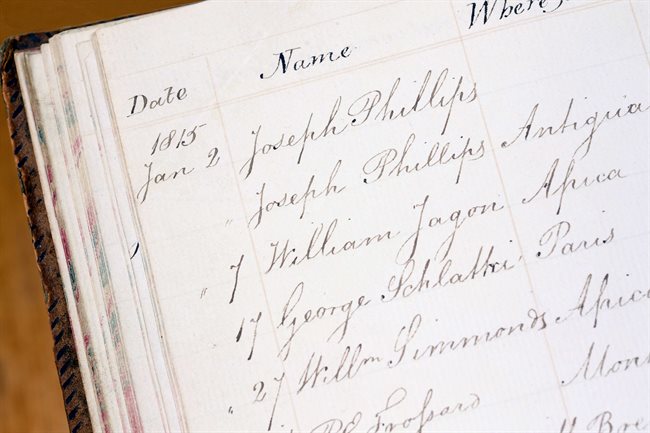 Date Name Where
1815
Jan 2 Joseph Phillips
" Joseph Phillips Antigua
" 7 William Jagon Africa
17 George Schlatki Paris
" 27 Willm Simmonds Africa
Frossard Mon
Bre